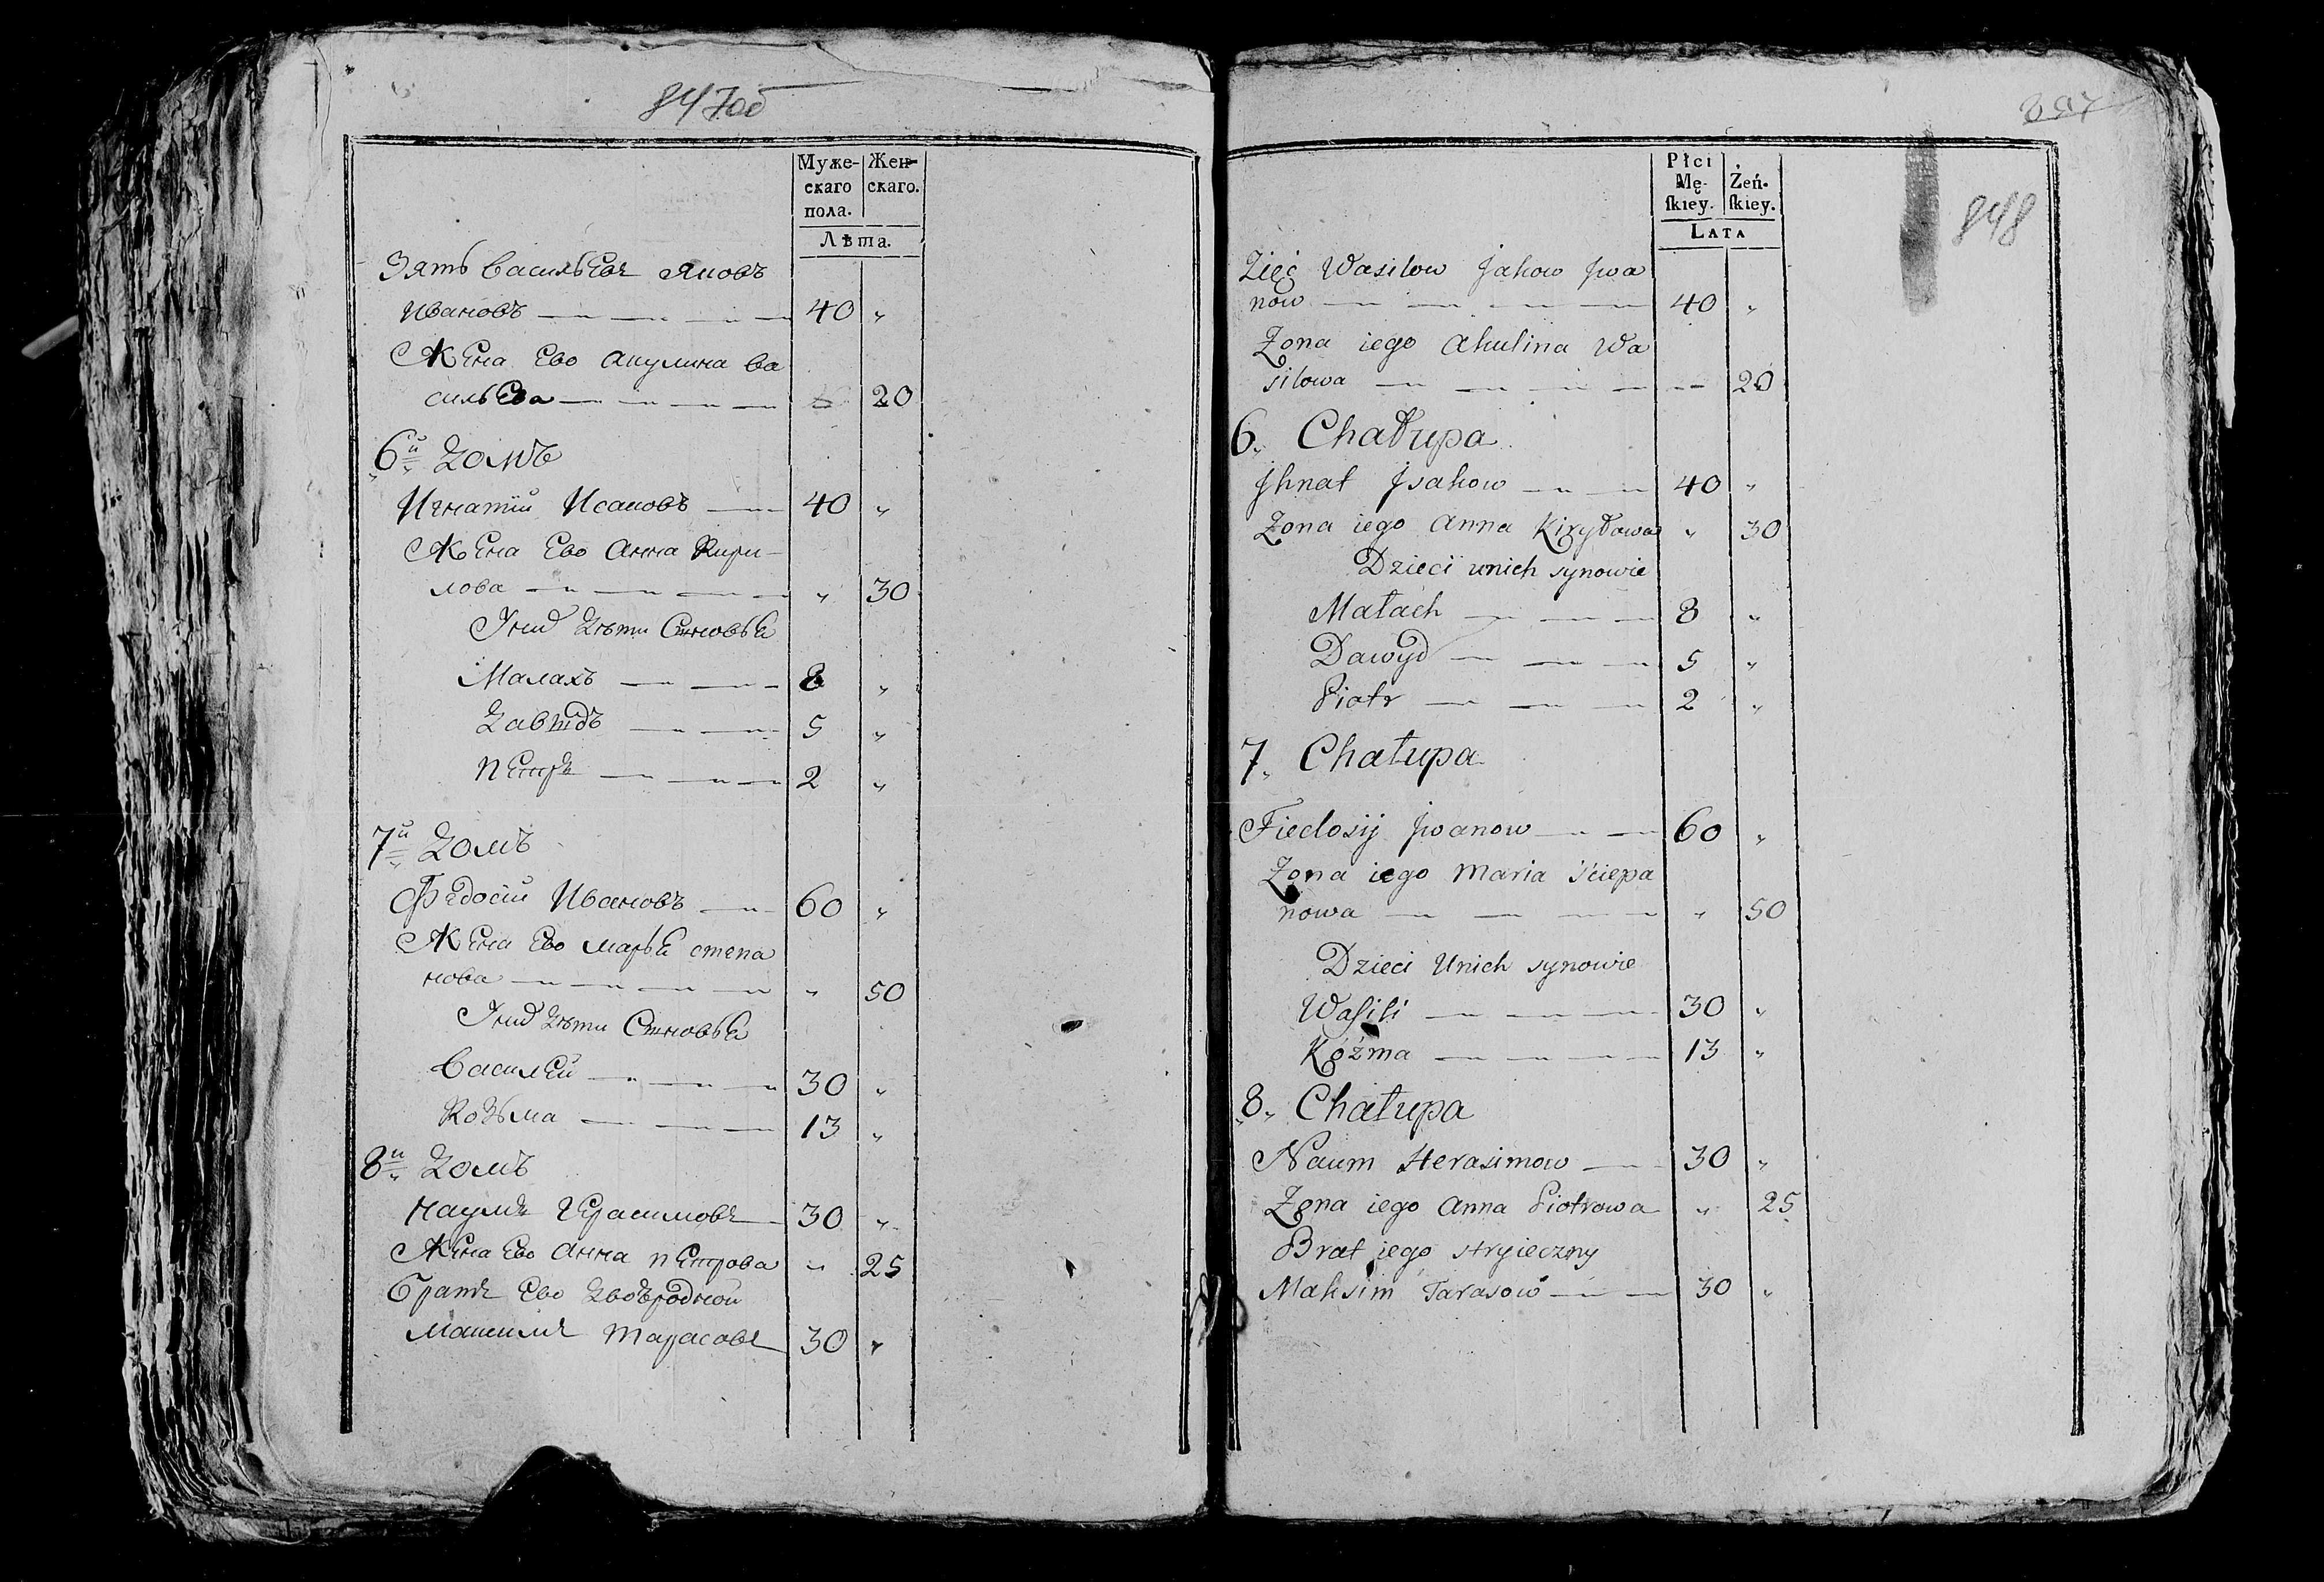 847об
Муже-
скаго
пола.
Жен-
скаго.
Лѣта.
Зять Васильевъ Яковъ
Ивановъ — 40 "
Жена Ево Акулина Ва
сильева — 20
6й домъ
Игнатiй Исаковъ — 40 "
Жена Ево Анна Кири-
лова — " 30
Уних дѣти Сыновья
Малахъ — 8 "
Давыдъ — 5 "
Петръ — 2 "
7й домъ
Федосiй Ивановъ — 60 "
Жена Ево Марья степа
нова — " 50
Уних дѣти Сыновья
Василей — 30 "
Козьма — 13 "
8й домъ
Наумъ Герасимовъ — 30 "
Жена Ево Анна Петрова " 25
Братъ Ево двоюродной
Максимъ Тарасовъ 30 "
848
Płci
Mę-
ſkiey.
Żeń-
ſkiey.
LATA
Zięć Wasilow Jakow Jwa
now — 40 "
Zona iego Akulina Wa
silowa — 20
6. Chałupa
Jhnat Jsakow — 40 "
Zona iego Anna Kiryłowa " 30
Dzieci unich synowie
Małach — 8 "
Dawyd — 5 "
Piotr — 2 "
7. Chałupa
Fiedosij Jwanow — 60 "
Zona iego Maria Sciepa
nowa — " 50
Dzieci Unich synowie
Waſili — 30 "
Kozma — 13 "
8. Chałupa
Naum Herasimow — 30 "
Zona iego Anna Piotrowa " 25
Brat iego stryieczny
Maksim Tarasow — 30 "